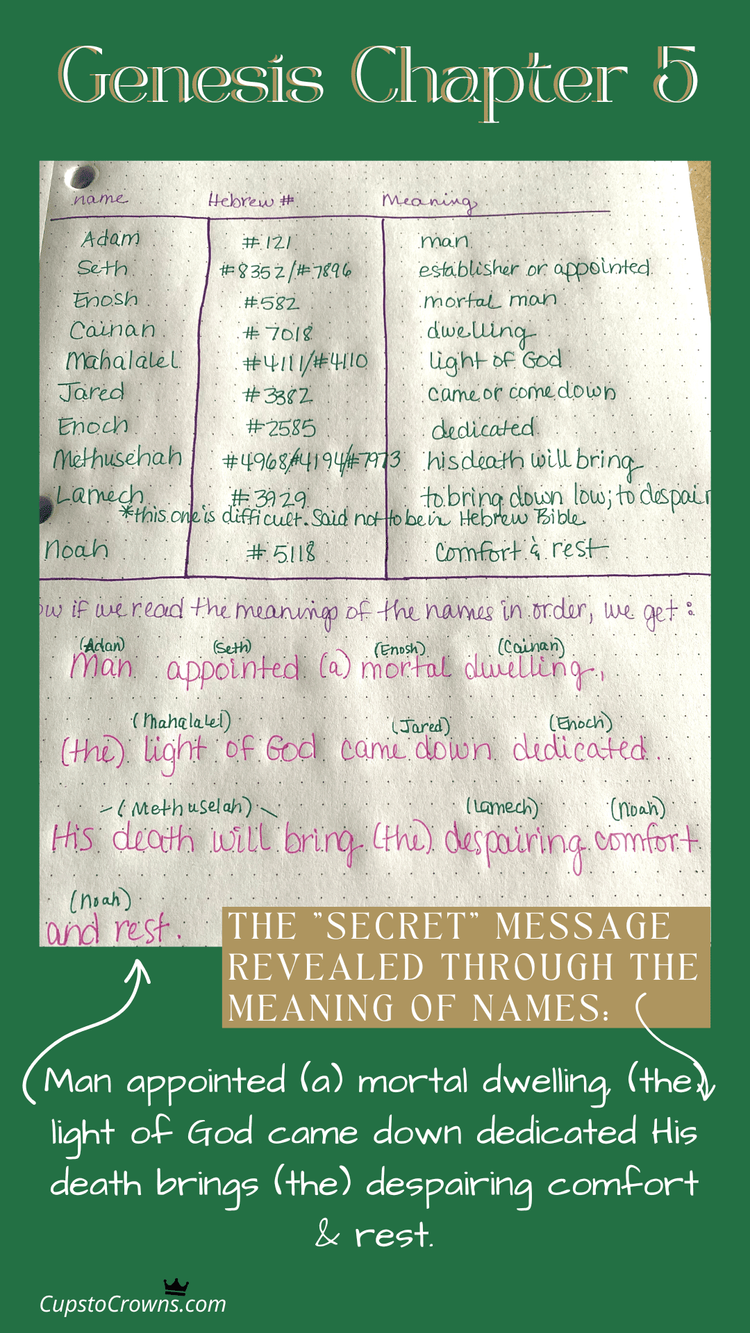 Genesis Chapter 5
name Hebrew # Meaning
Adam #121 man
Seth #8352/#7896 establisher or appointed
Enosh #582 mortal man
Cainan #7018 dwelling
Mahalalel #4111/#4110 light of God
Jared #3382 came or come down
Enoch #2585 dedicated
Methusehah #4968/#4194/#7973 his death will bring
Lamech #3929 to bring down low; to despair
*this one is difficult. Said not to be in Hebrew Bible.
Noah #5118 comfort & rest
ow if we read the meanings of the names in order, we get:
(Adan) (Seth) (Enosh) (Cainan)
Man appointed (a) mortal dwelling,
(Mahalalel) (Jared) (Enoch)
(the) light of God came down dedicated.
(Methuselah) (Lamech) (Noah)
His death will bring (the) despairing comfort
(Noah)
and rest.
THE "SECRET" MESSAGE
REVEALED THROUGH THE
MEANING OF NAMES:
Man appointed (a) mortal dwelling, (the)
light of God came down dedicated His
death brings (the) despairing comfort
& rest.
CupstoCrowns.com